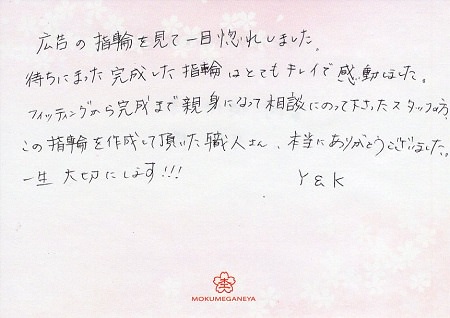 広告の指輪を見て一目惚れしました。
待ちにまった完成した指輪はとてもキレイで感動しました。
フィッティングから完成まで親身になって相談にのって下さったスタッフの方、
この指輪を作成して頂いた職人さん、本当にありがとうございました。
一生大切にします!!!
Y & K
MOKUMEGANEYA